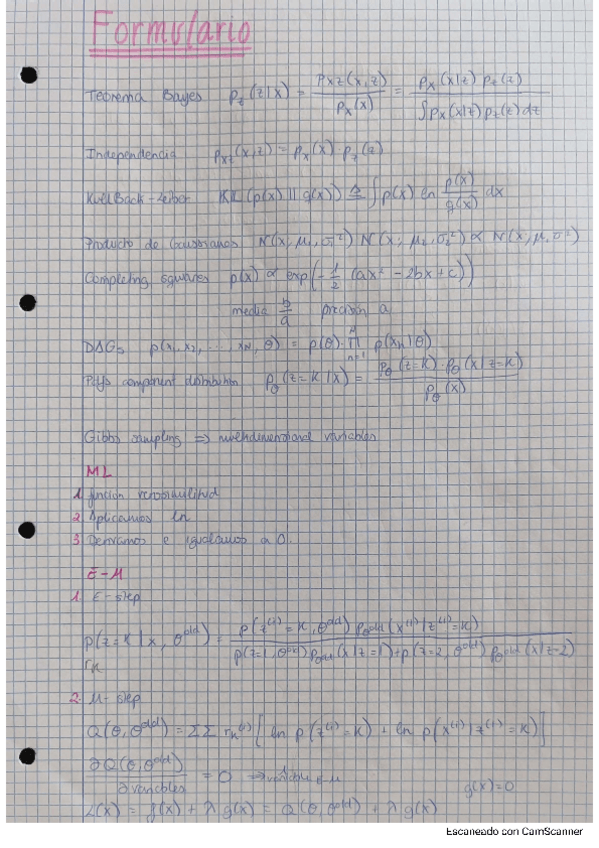 Formulario
Teorema Bayes p_z(z|x) = p_xz(x,z) / p_x(x) = p_x(x|z) p_z(z) / ∫p_x(x|z) p_z(z) dz
Independencia p_xz(x,z) = p_x(x) · p_z(z)
KullBack-Leiber KL (p(x) || g(x)) ≜ ∫ p(x) ln p(x)/g(x) dx
Producto de Gaussianas N(x, μ₁, σ₁²) N(x; μ₂, σ₂²) ∝ N(x, μ, σ²)
Completing squares p(x) ∝ exp(-1/2 (ax² - 2bx + c))
media b/a precision a
DAGs p(x₁, x₂, ... x_N, θ) = p(θ) · ∏_{n=1}^{N} p(x_n|θ)
component distribution p_θ(z=K|x) = p_θ(z=K) · p_θ(x|z=K) / p_θ(x)
Gibbs sampling ⇒ multidimensional variables
ML
1. función verosimilitud
2. Aplicamos ln
3. Derivamos e igualamos a 0.
E-M
1. E-step
p(z=K|x, θ^old) = p(z^(i)=K, θ^old) p_θold(x^(i)|z^(i)=K) / p(z=1, θ^old) p_θold(x|z=1) + p(z=2, θ^old) p_θold(x|z=2)
r_K
2. M-step
Q(θ, θ^old) = ΣΣ r_K^(i) [ln p(z^(i)=K) + ln p(x^(i)|z^(i)=K)]
∂Q(θ, θ^old) / ∂variables = 0 ⇒
g(x)=0
L(x) = f(x) + λ g(x) = Q(θ, θ^old) + λ g(x)
Escaneado con CamScanner